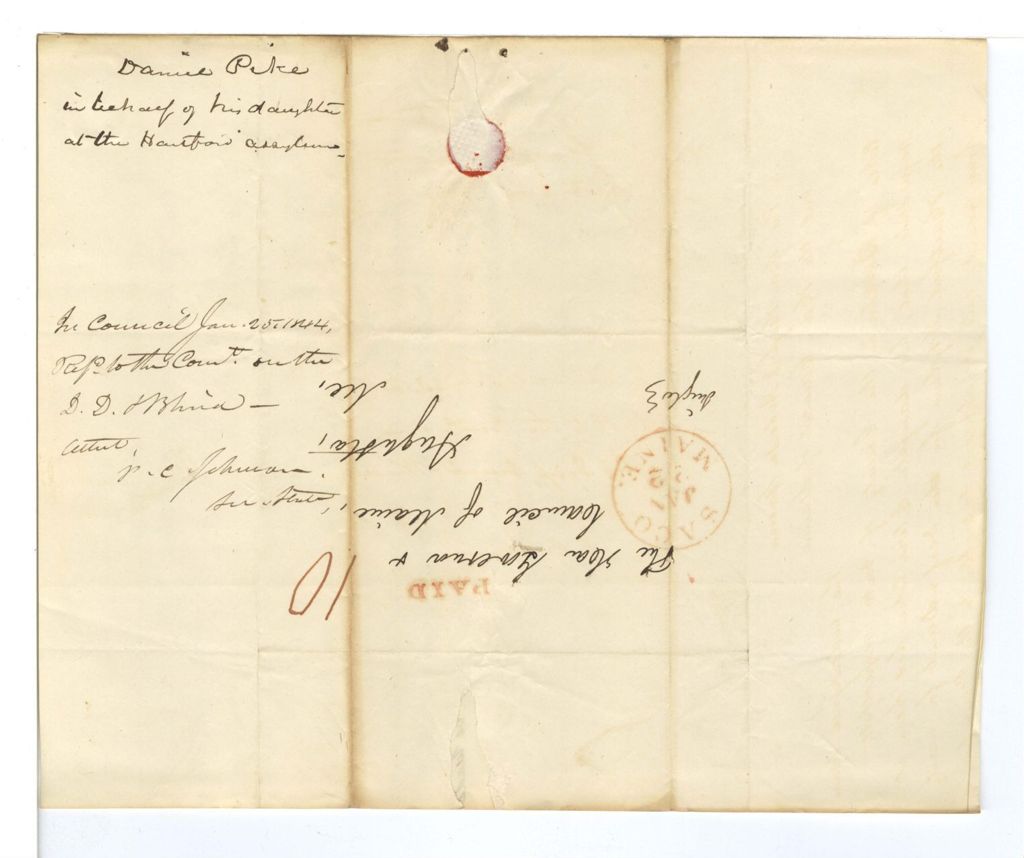 Daniel Pike
in behalf of his daughter
at the Hartford Asylum
In Council Jan. 25, 1844.
Refd to the Comt. on the
D. D. & Blind —
Attest,
P. C. Johnson.
Sec. State
10
PAID
The Hon Governor &
Council of Maine,
Augusta,
Me,
SACO
JA
MAINE.
Single